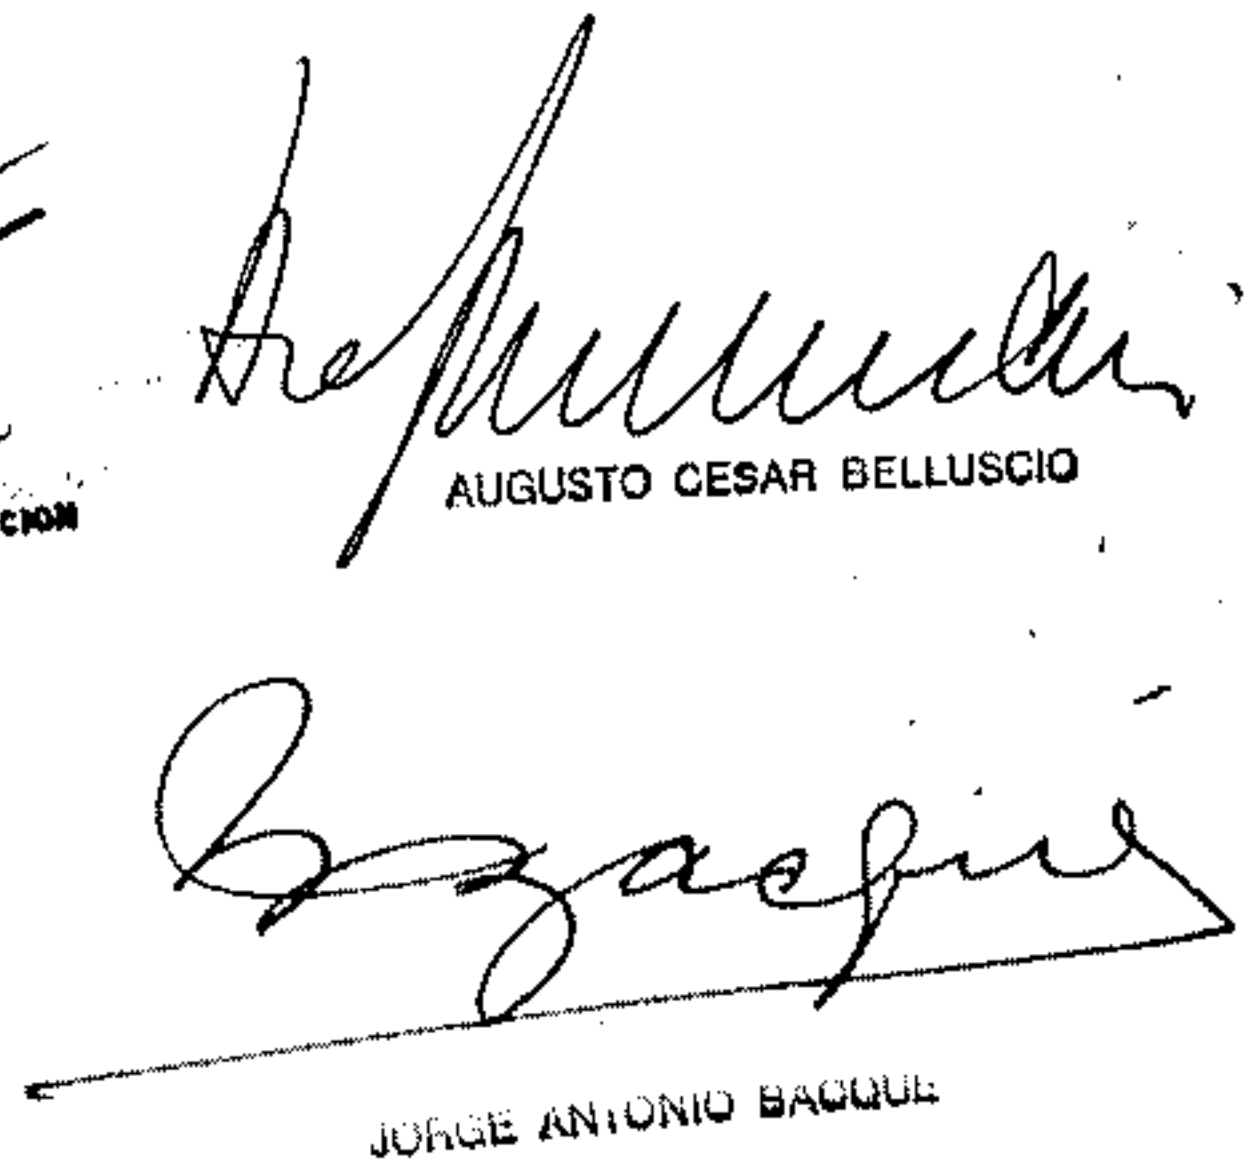 AUGUSTO CESAR BELLUSCIO
CION
JORGE ANTONIO BACQUE